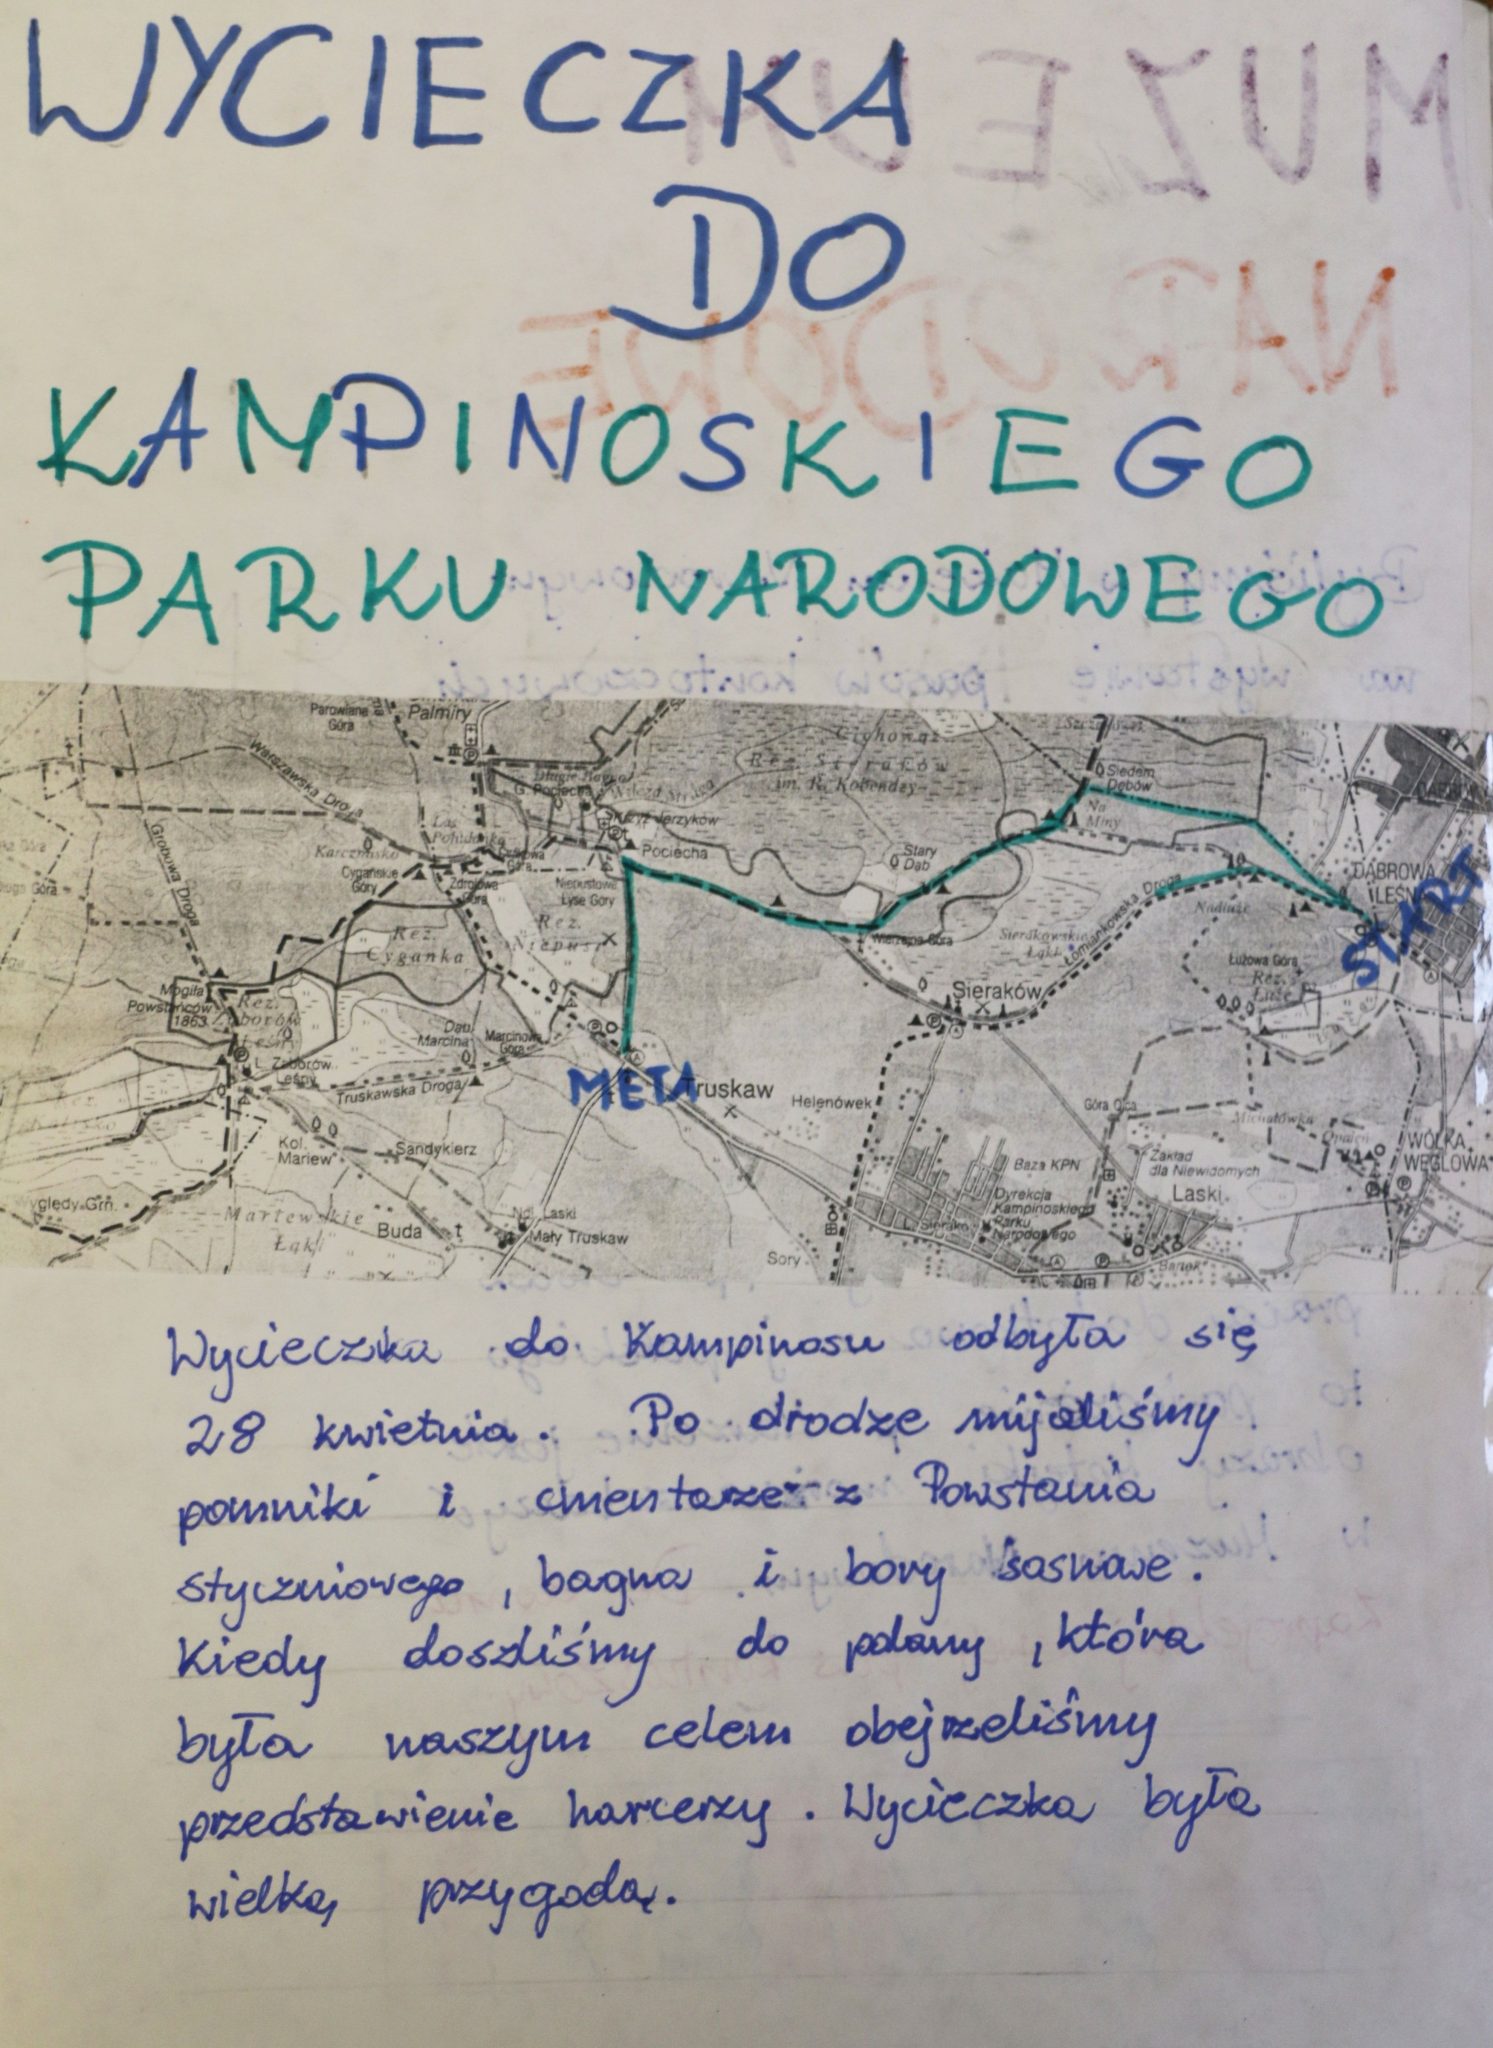 WYCIECZKA
DO
KAMPINOSKIEGO
PARKU NARODOWEGO
Parowiana Góra
Palmiry
Warszawska Droga
Grobowa Droga
Długie Bagno
G. Pociecha
Wilcza Struga
Cichowąż
Rez. Sieraków
im. R. Kobendzy
Siedem Dębów
Na Miny
Pociecha
Stary Dąb
Karczmisko
Cygańskie Góry
Zdrojowa Góra
Niepustowe Łyse Góry
DĄBROWA LEŚNA
START
Rez. Cyganka
Wierzejna Góra
Sierakowskie Łąki
Łomiankowska Droga
Nadłuże
Łużowa Góra
Rez. Łuże
Sieraków
Mogiła Powstańców 1863
Rez. Zaborów Leśny
Dąb Marcina
Marcinowa Góra
L. Zaborów Leśny
Truskawska Droga
META
Truskaw
Helenówek
Góra Ojca
Michałówka
Opaleń
WÓLKA WĘGLOWA
Kol. Mariew
Sandykierz
Baza KPN
Zakład dla Niewidomych
Laski
Dyrekcja Kampinoskiego Parku Narodowego
L. Sieraków
Martewskie Łąki
Buda
Ndl. Laski
Mały Truskaw
Sory
Wycieczka do Kampinosu odbyła się
28 kwietnia. Po drodze mijaliśmy
pomniki i cmentarze z Powstania
styczniowego, bagna i bory sosnowe.
Kiedy doszliśmy do polany, która
była naszym celem obejrzeliśmy
przedstawienie harcerzy. Wycieczka była
wielką przygodą.